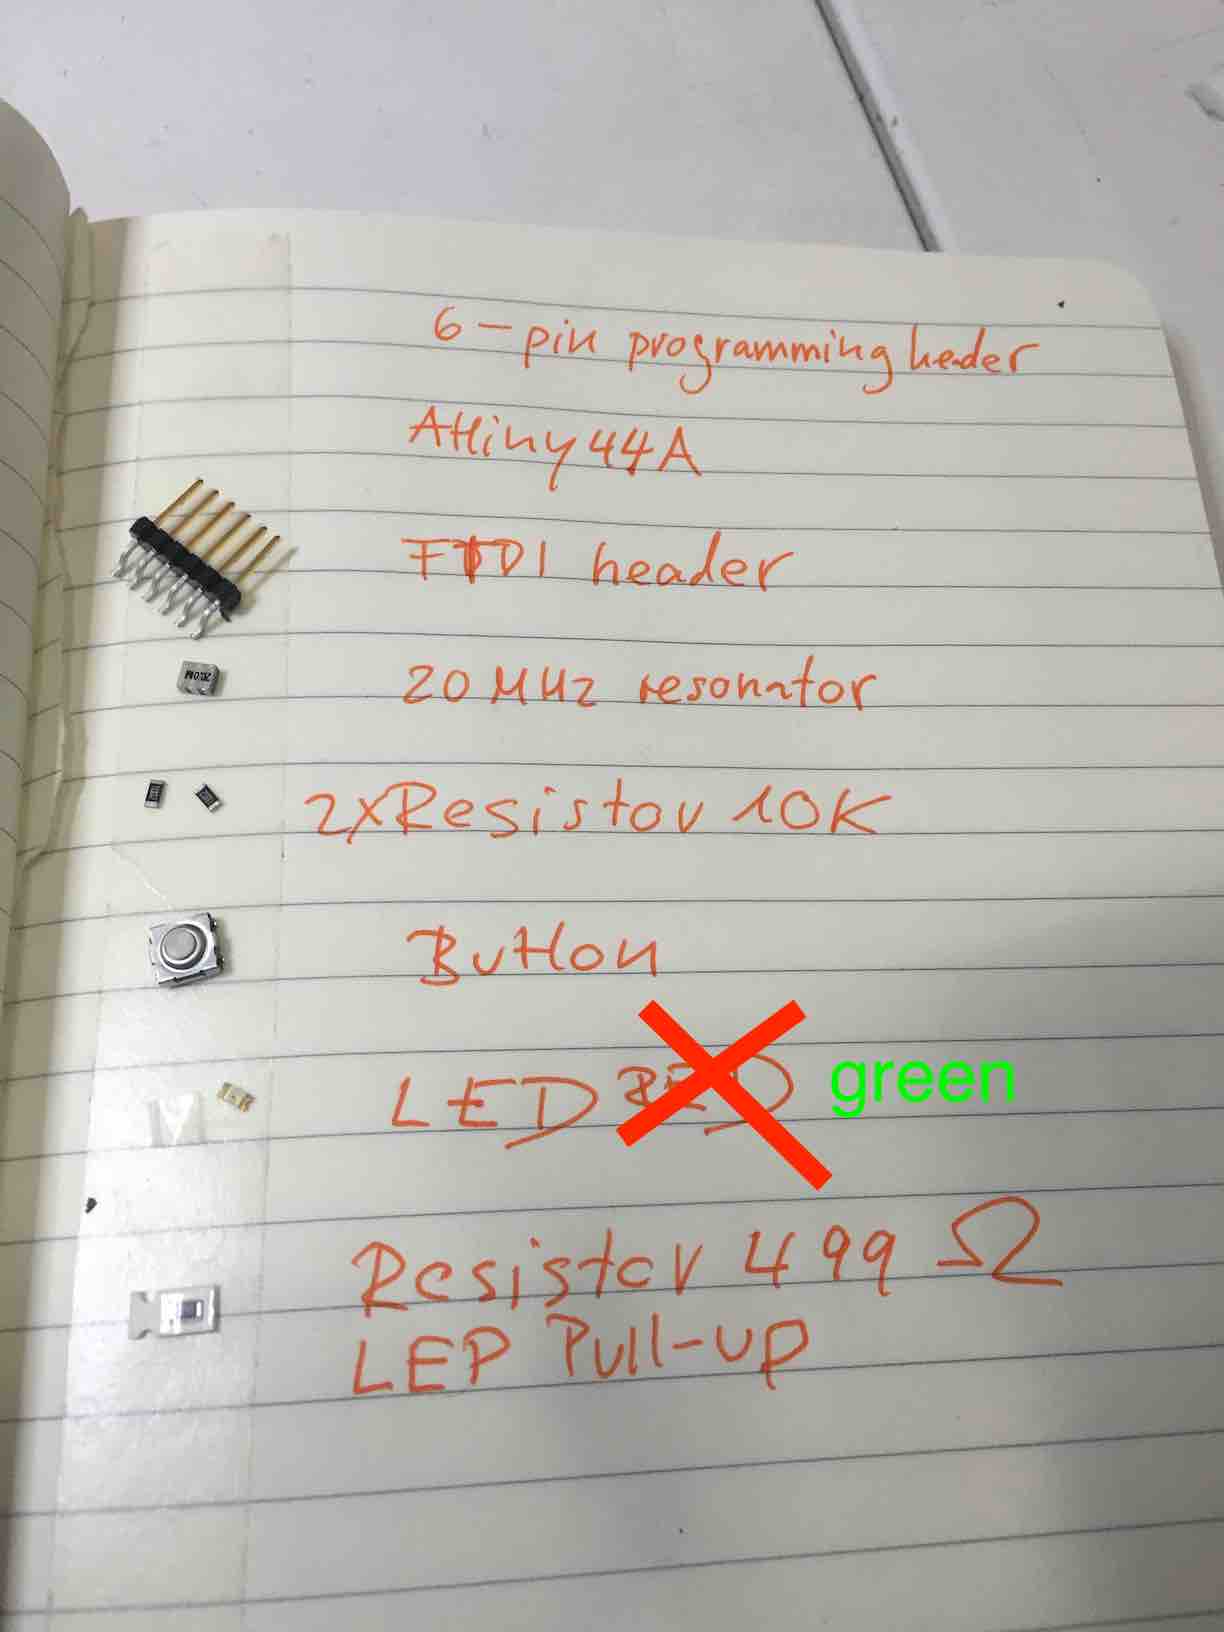 6-pin programming header
ATtiny44A
FTDI header
20 MHz resonator
2xResistor 10K
Button
LED RED green
Resistor 499 Ω
LEP Pull-up